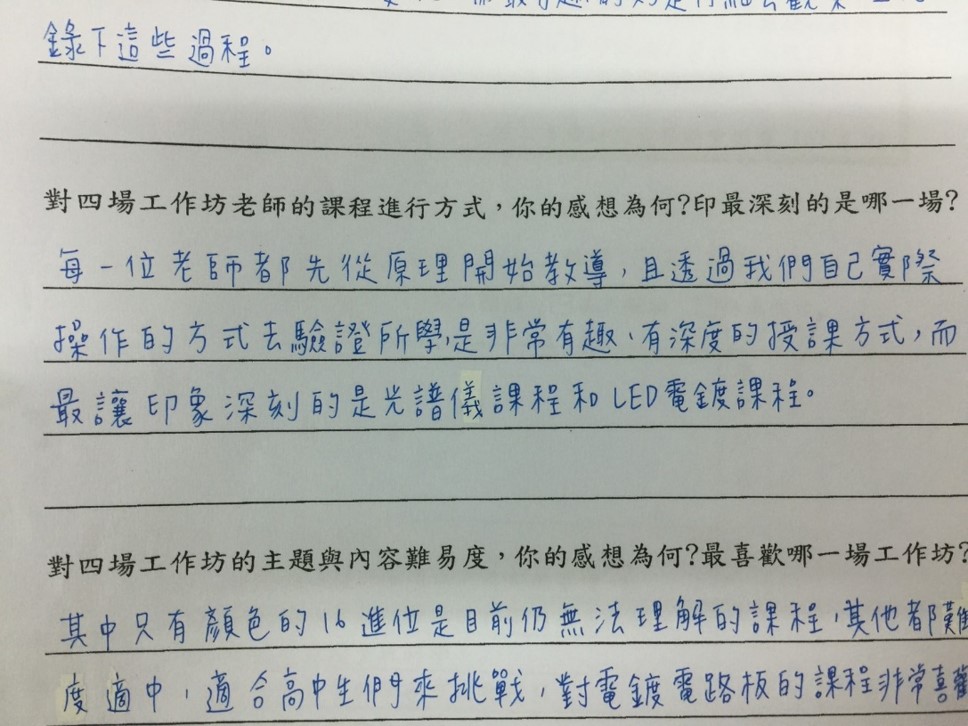 錄下這些過程。
對四場工作坊老師的課程進行方式，你的感想為何?印最深刻的是哪一場?
每一位老師都先從原理開始教導，且透過我們自己實際
操作的方式去驗證所學，是非常有趣、有深度的授課方式，而
最讓印象深刻的是光譜儀課程和LED電鍍課程。
對四場工作坊的主題與內容難易度，你的感想為何?最喜歡哪一場工作坊?
其中只有顏色的16進位是目前仍無法理解的課程，其他都難
度適中，適合高中生們來挑戰，對電鍍電路板的課程非常喜歡